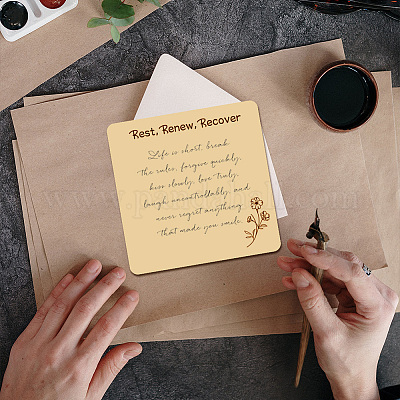 Rest, Renew, Recover
Life is short, break
the rules, forgive quickly,
kiss slowly, love truly,
laugh uncontrollably, and
never regret anything
that made you smile.